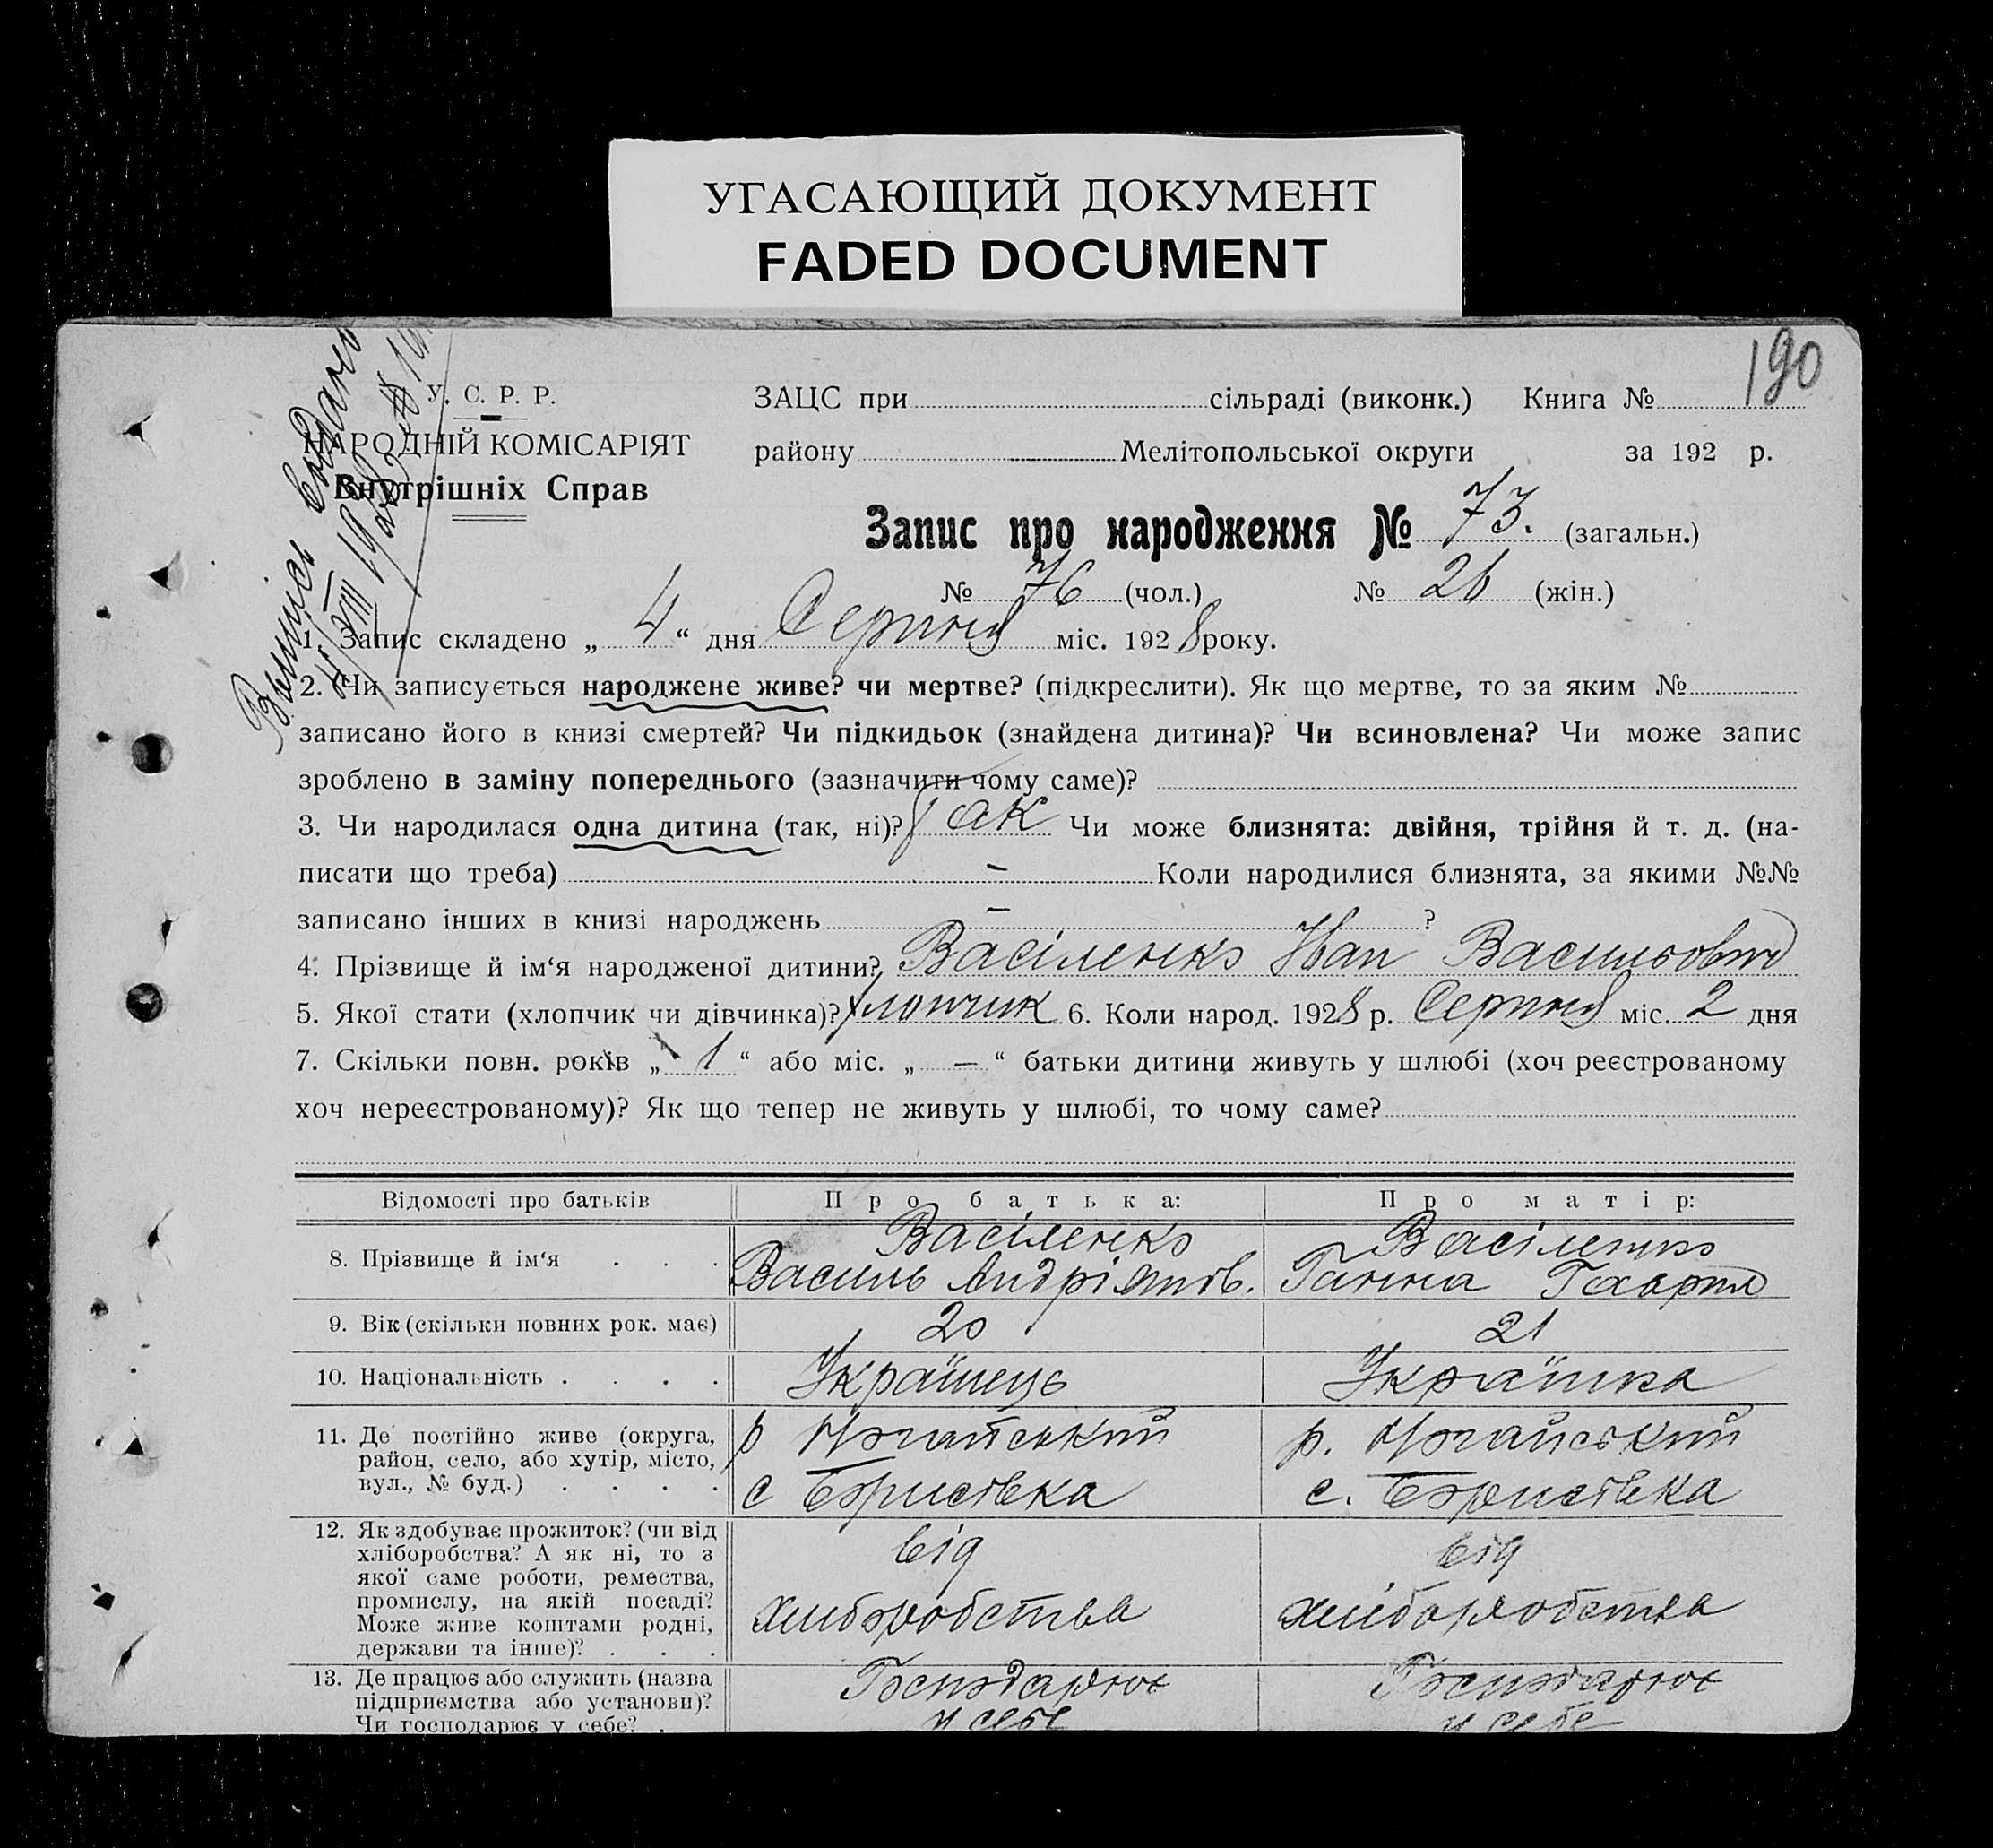 УГАСАЮЩИЙ ДОКУМЕНТ
FADED DOCUMENT
190
У. С. Р. Р.
НАРОДНІЙ КОМІСАРІЯТ
Внутрішніх Справ
ЗАЦС при сільраді (виконк.) Книга №
району Мелітопольської округи за 192 р.
Запис про народження № 73. (загальн.)
№ 76 (чол.) № 26 (жін.)
1. Запис складено „ 4 “ дня Серпня міс. 1928 року.
2. Чи записується народжене живе? чи мертве? (підкреслити). Як що мертве, то за яким №
записано його в книзі смертей? Чи підкидьок (знайдена дитина)? Чи всиновлена? Чи може запис
зроблено в заміну попереднього (зазначити чому саме)?
3. Чи народилася одна дитина (так, ні)? Так Чи може близнята: двійня, трійня й т. д. (на-
писати що треба) — Коли народилися близнята, за якими №№
записано інших в книзі народжень — ?
4. Прізвище й ім‘я народженої дитини? Васіленко Иван Васильович
5. Якої стати (хлопчик чи дівчинка)? Хлопчик 6. Коли народ. 1928 р. Серпня міс. 2 дня
7. Скільки повн. років „ 1 “ або міс. „ — “ батьки дитини живуть у шлюбі (хоч реєстрованому
хоч нереєстрованому)? Як що тепер не живуть у шлюбі, то чому саме?
Відомості про батьків Про батька: Про матір:
8. Прізвище й ім‘я . . . Васіленко Василь Андріянов. Васіленко Ганна Гаврил
9. Вік (скільки повних рок. має) 20 21
10. Національність . . . . Українець Українка
11. Де постійно живе (округа,
район, село, або хутір, місто,
вул., № буд.) . . . .
с Борисівка
с. Борисівка
12. Як здобуває прожиток? (чи від
хліборобства? А як ні, то з
якої саме роботи, ремества,
промислу, на якій посаді?
Може живе коштами родні,
держави та інше)? . . .
від
хлиборобства
від
хлиборобства
13. Де працює або служить (назва
підприємства або установи)?
Чи господарює у себе? .
Господарює
у себе
Господарює
у себе